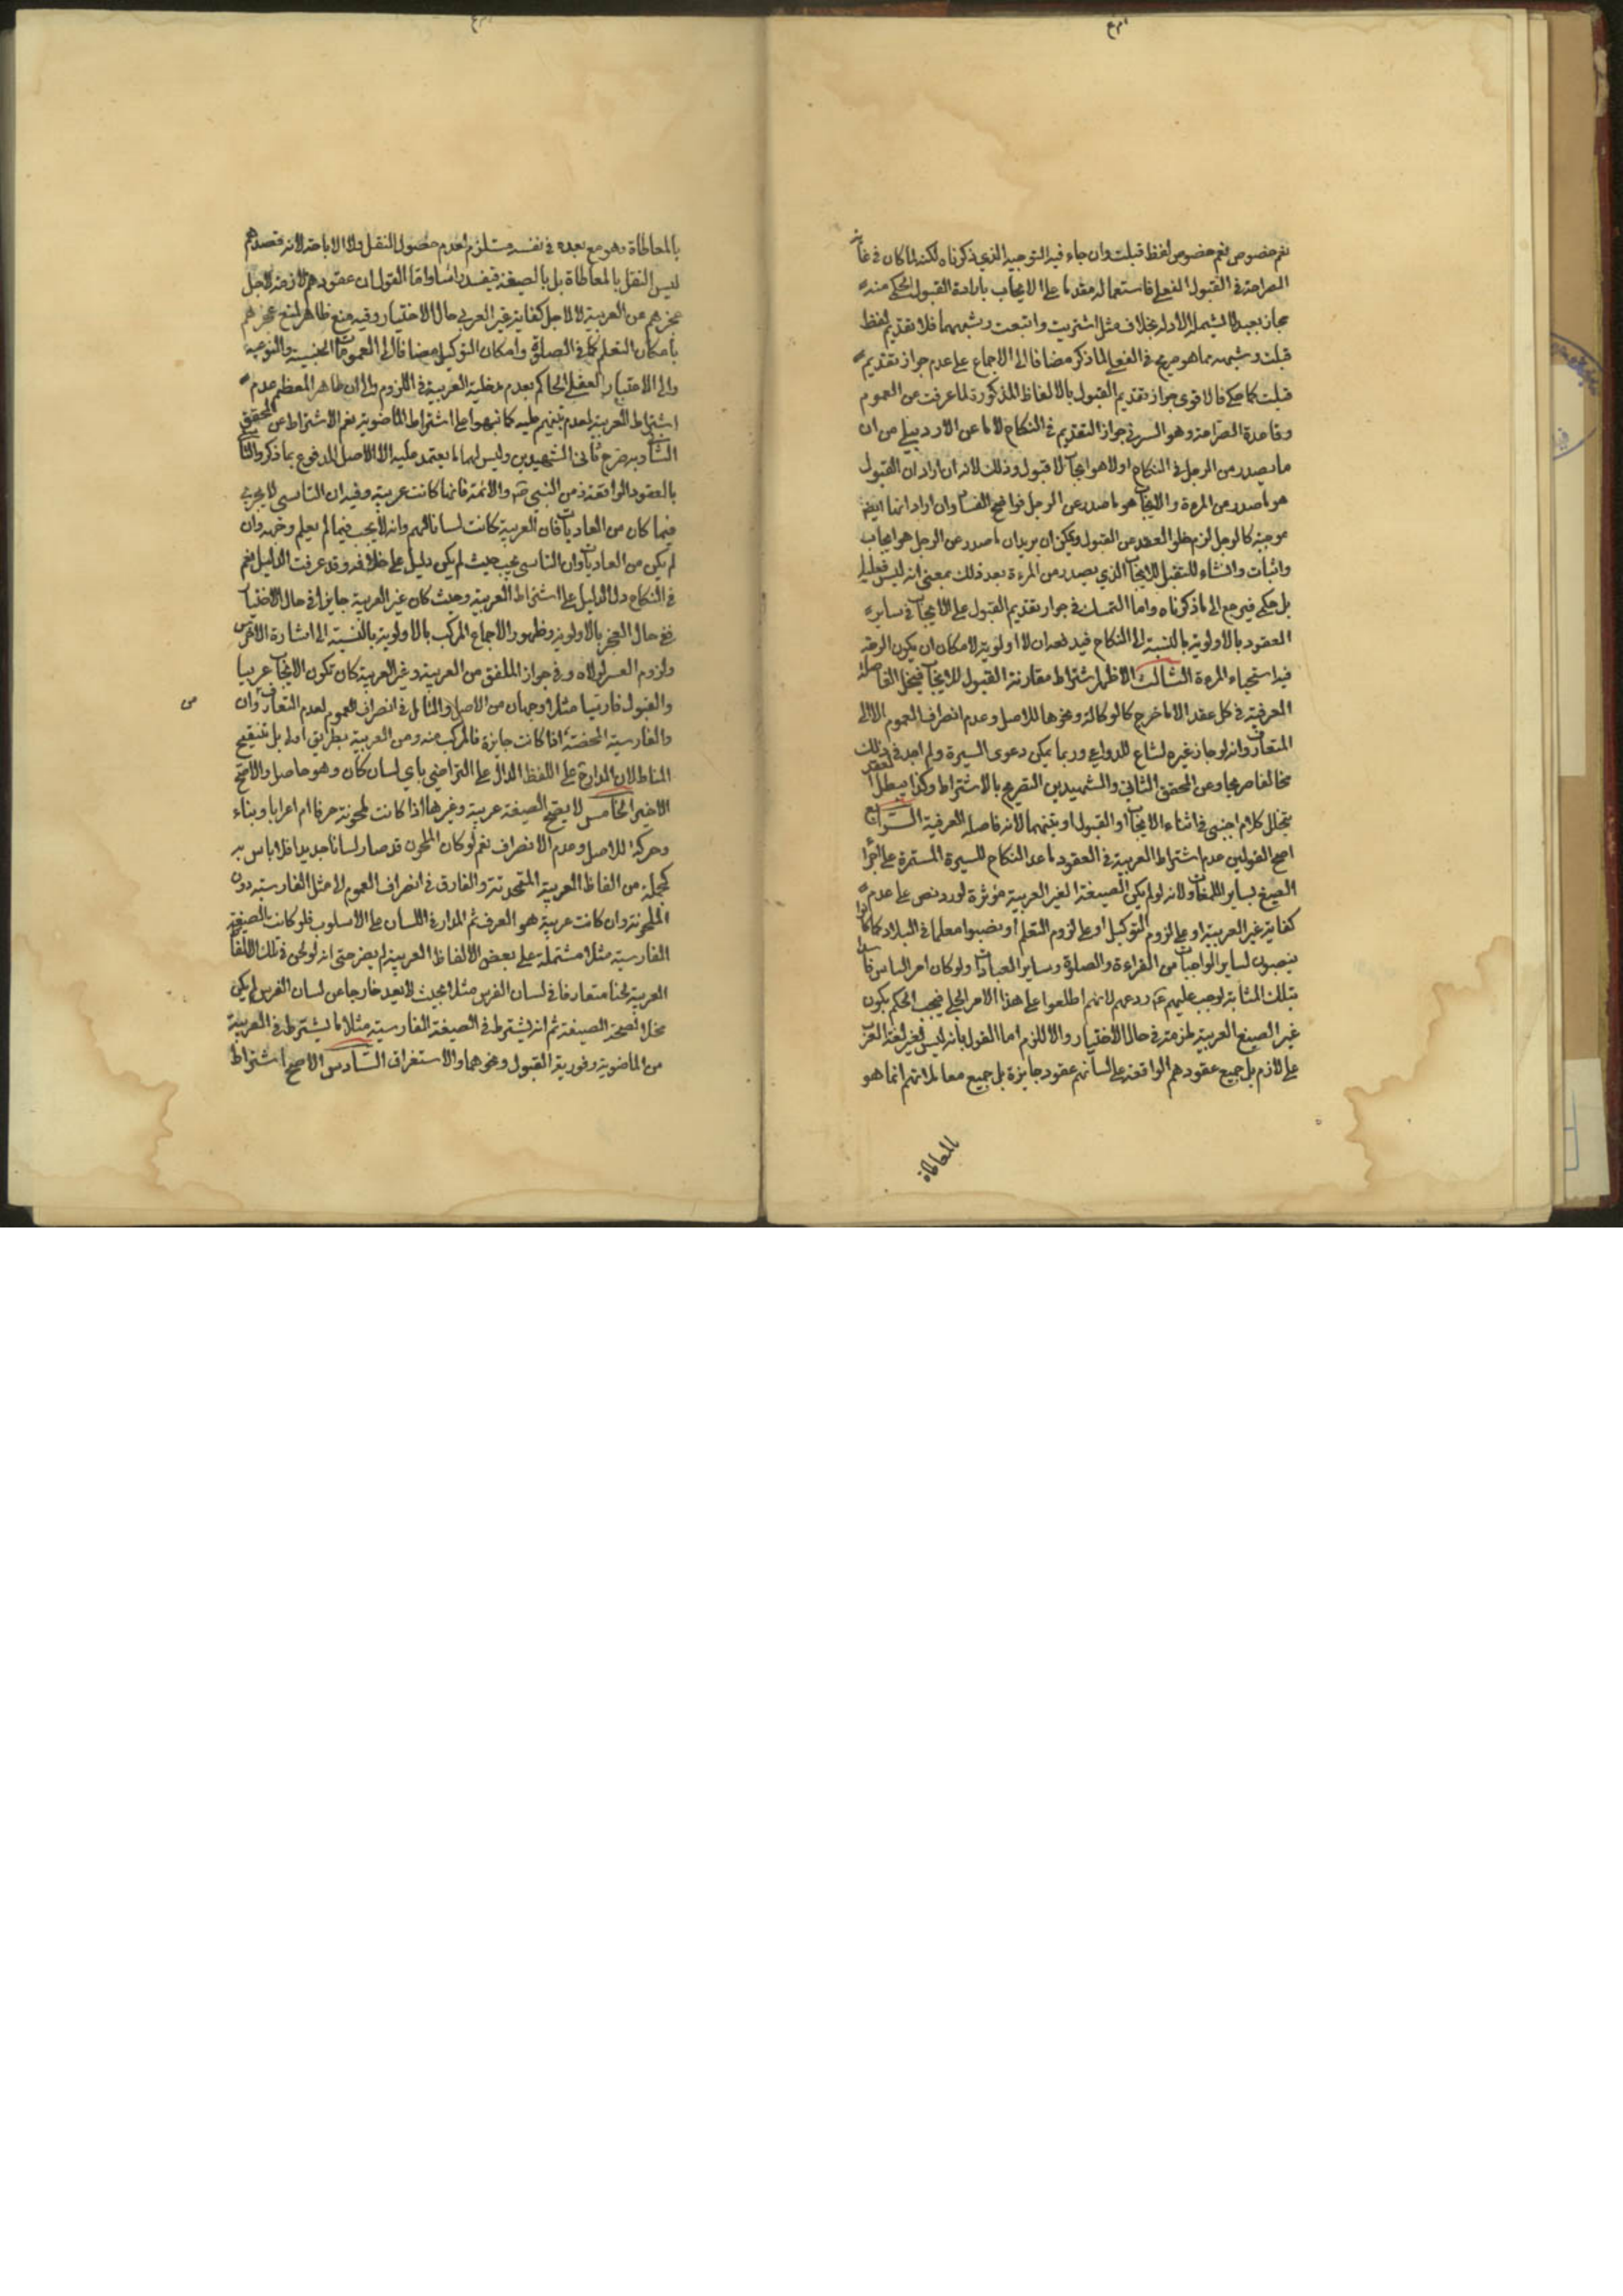 نعم خصوص لفظ قبلت وان جاء فيه التوجيه الذي ذكرناه لكنه لما كان في غاية
الصراحة في القبول الفعلي فاستعماله مقدما على الايجاب بارادة القبول الحكمي منه
مجاز بعيد لا يشمله الادلة بخلاف مثل اشتريت وابتعت وشبههما فلا تقديم لفظ
قبلت وشبهه مما هو صريح في الفعلي لما ذكر مضافا الى الاجماع على عدم جواز تقديم
قبلت كما حكي فالاقوى جواز تقديم القبول بالالفاظ المذكورة لما عرفت من العموم
وقاعدة الصراحة وهو السر في جواز التقديم في النكاح لا ما عن الاردبيلي من ان
ما يصدر من الرجل في النكاح اولا هو ايجاب لا قبول وذلك لانه ان اراد ان القبول
هو ما صدر من المرءة والايجاب هو ما صدر عن الرجل فواضح الفساد وان اراد انها ايضا
موجبة كالرجل لزم خلو العقد من القبول ويمكن ان يريد ان ما صدر من الرجل هو ايجاب
واثبات وانشاء للتقبل للايجاب الذي يصدر من المرءة بعد ذلك بمعنى انه ليس فعليا
بل حكمي فيرجع الى ما ذكرناه واما التمسك في جواز تقديم القبول على الايجاب في ساير
العقود بالاولوية بالنسبة الى النكاح فيدفعه ان لا اولوية لامكان ان يكون الوجه
فيه استحياء المرءة الثالث الاظهر اشتراط مقارنة القبول للايجاب فيخل الفاصلة
العرفية في كل عقد الا ما خرج كالوكالة ونحوها للاصل وعدم انصراف العموم الا الى
المتعارف وانه لو جاز غيره لشاع للدواعي وربما يمكن دعوى السيرة ولم اجد في ذلك
مخالفا صريحا وعن المحقق الثاني والشهيدين التصريح بالاشتراط وكذا يبطل العقد
بتخلل كلام اجنبي في اثناء الايجاب او القبول او بينهما لانه فاصلة العرفية الرابع
اصح القولين عدم اشتراط العربية في العقود ما عد النكاح للسيرة المستمرة على اجراء
الصيغ بساير اللغات ولانه لو لم يكن الصيغة الغير العربية مؤثرة لورد نص على عدم
كفاية غير العربية او على لزوم التوكيل او على لزوم التعلم او نصبوا معلما في البلاد كما كانوا
ينصبون لساير الواجبات من القراءة والصلوة وساير العبادات ولو كان امر الناس فاسدا
بتلك المثابة لوجب عليهم ردعهم لانهم اطلعوا على هذا الامر الجلي فيجب الحكم بكون
غير الصيغ العربية ملزمة في حال الاختيار والا لزم اما القول بانه ليس لغير لغة العرب
على لازم بل جميع عقودهم الواقعة على لسانهم عقود جايزة بل جميع معاملاتهم انما هو
بالمعاطاة
بالمعاطاة وهو مع بعده في نفسه مستلزم لعدم حصول النقل ولا الاباحة لانه قصدهم
ليس النقل بالمعاطاة بل بالصيغة فيفسد راسا واما القول ان عقودهم لازمة لاجل
عجزهم عن العربية لا لاجل كفاية غير العربي حال الاختيار وفيه منع ظاهر لمنع عجزهم
بامكان التعلم كما في الصلوة وامكان التوكيل مضافا الى العمومات الجنسية والنوعية
والى الاعتبار العقلي الحاكم بعدم مدخلية العربية في اللزوم والى ان ظاهر المعظم عدم
اشتراط العربية لعدم تنبيههم عليه كما نبهوا على اشتراط الماضوية نعم الاشتراط عن المحقق
الثاني وبه صرح ثاني الشهيدين وليس لهما ما يعتمد عليه الا الاصل المدفوع بما ذكر والتاسي
بالعقود الواقعة من النبي ص والائمة فانها كانت عربية وفيه ان التاسي لا يجري
فيما كان من العاديات فان العربية كانت لسانا لهم وانه لا يجب فيما لم يعلم وجهه وان
لم يكن من العاديات وان التاسي يجب حيث لم يكن دليل على خلافه وقد عرفت الدليل نعم
في النكاح دل الدليل على اشتراط العربية وحيث كان غير العربية جايزا في حال الاختيار
ففي حال العجز بالاولوية وظهور الاجماع المركب بالاولوية بالنسبة الى اشارة الاخرس
ولزوم العسر لولاه وفي جواز الملفق من العربية وغير العربية كان تكون الايجاب عربيا
والقبول فارسيا مثلا وجهان من الاصل والتامل في انصراف العموم لعدم التعارف وان
والفارسية المحضة اذا كانت جايزة فالمركب منه ومن العربية بطريق اولى بل تنقيح
المناط لان المدار على اللفظ الدال على التراضي باي لسان كان وهو حاصل والاصح
الاخير الخامس لا يصح الصيغة عربية وغيرها اذا كانت ملحونة حرفا ام اعرابا وبناء
وحركة للاصل وعدم الانصراف نعم لو كان الملحون قد صار لسانا جديدا فلا باس به
كجملة من الفاظ العربية المتحدثة والفارق في انصراف العموم لا مثل الفارسية دون
الملحونة وان كانت عربية هو العرف ثم المدار في اللسان على الاسلوب فلو كانت الصيغة
الفارسية مثلا مشتملة على بعض الالفاظ العربية لم يضر حتى انه لو لحن في تلك الالفاظ
العربية لحنا متعارفا في لسان الفرس مثلا بحيث لا يعد خارجا عن لسان الفرس لم يكن
مخلا لصحة الصيغة ثم انه يشترط في الصيغة الفارسية مثلا ما يشترط في العربية
من الماضوية وفورية القبول ونحوهما والاستغراق السادس الاصح اشتراط